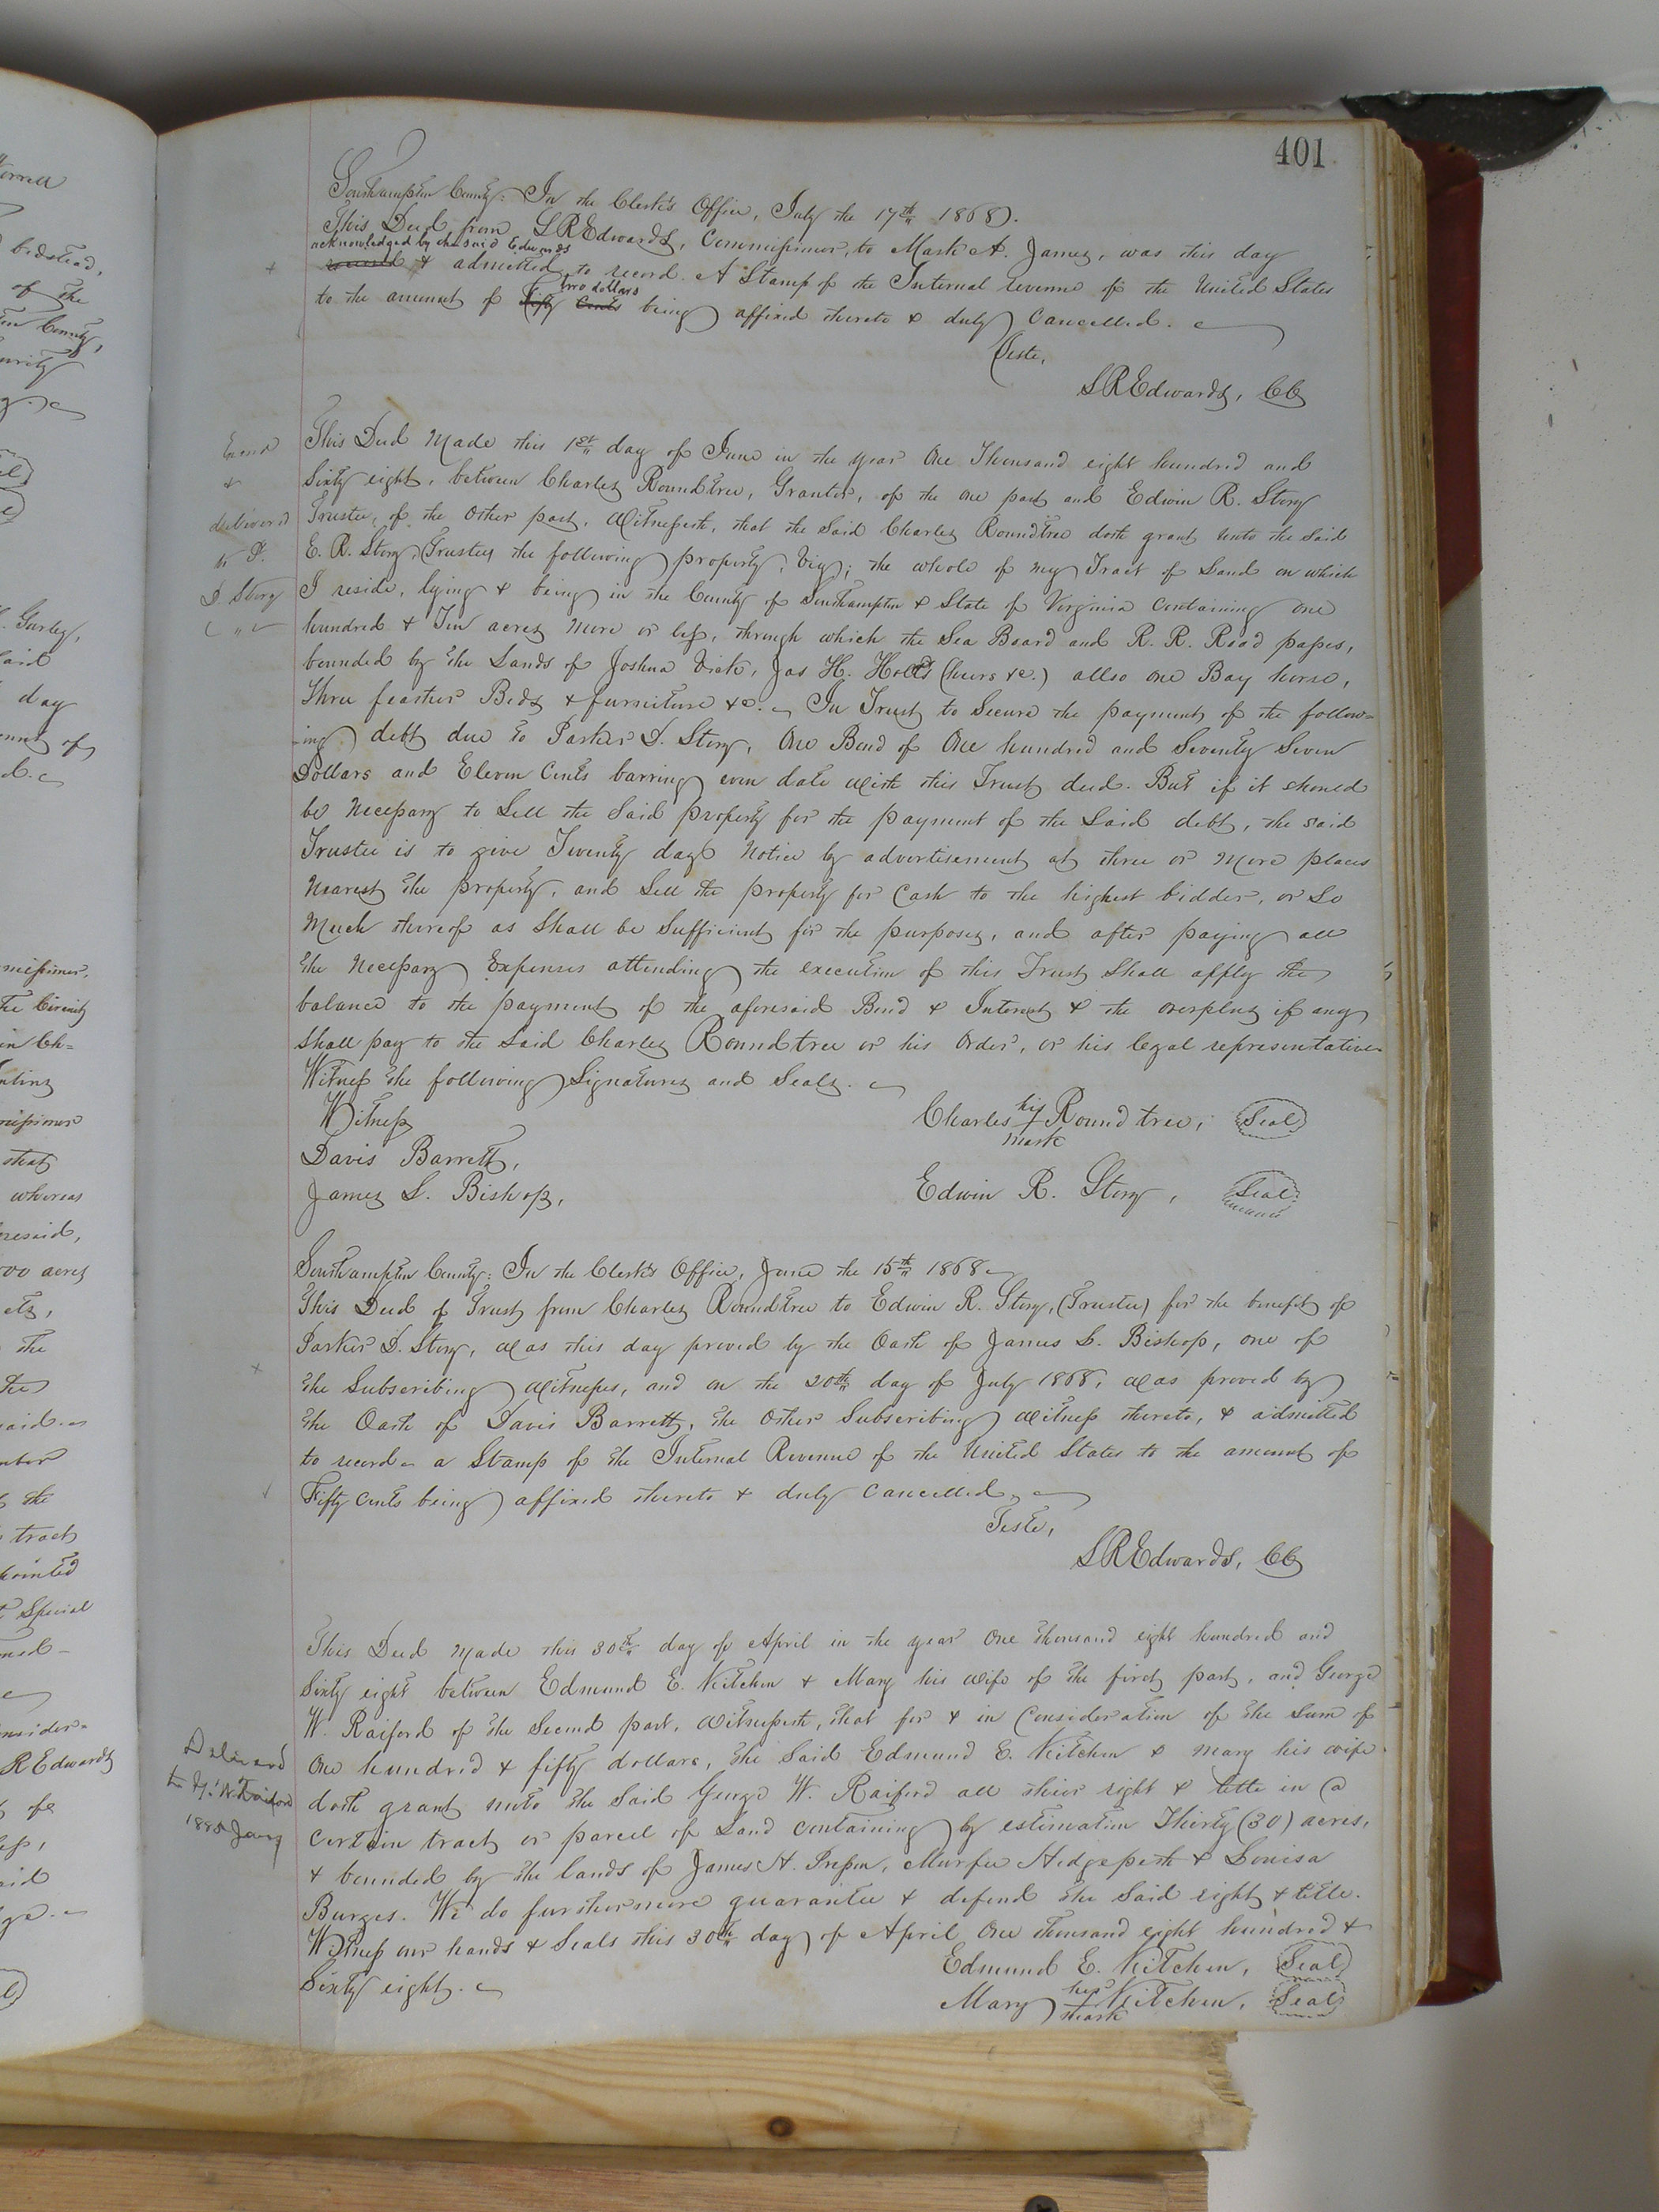 401
Southampton County: In the Clerk's Office, July the 17th 1868.
This Deed from LREdwards, Commissioner, to Mark A. James, was this day
acknowledged by the said Edwards
& admitted to record. A Stamp of the Internal revenue of the United States
two dollars
to the amount of fifty Cents being affixed thereto & duly Cancelled.
Teste,
LREdwards, CC
This Deed Made this 1st day of June in the year One Thousand eight hundred and
Sixty eight, between Charles Roundtree, Grantor, of the one part and Edwin R. Story
Trustee, of the Other part, Witnesseth, that the Said Charles Roundtree doth grant unto the Said
E. R. Story, Trustee, the following property, Viz; the whole of my Tract of Land on which
I reside, lying & being in the County of Southampton & State of Virginia Containing one
hundred & Ten acres More or less, through which the Sea Board and R. R. Road passes,
bounded by the Lands of Joshua Vick, Jas H. (heirs &c.) allso one Bay horse,
Three feather Beds & furniture &c. In Trust to Secure the payment of the follow=
-ing debt due to Parker D. Story, One Bond of One hundred and Seventy Seven
Dollars and Eleven Cents barring even date With this Trust deed. But if it should
be Necessary to Sell the Said property for the payment of the Said debt, the said
Trustee is to give Twenty days Notice by advertisement at three or More places
Nearest the property, and Sell the property for Cash to the highest bidder, or So
Much thereof as Shall be Sufficient for the purposes, and after paying all
the Necessary Expenses attending the execution of this Trust Shall apply the
balance to the payment of the aforesaid Bond & Interest & the overplus if any
shall pay to the Said Charles Roundtree or his Order, or his legal representative
Witness the following Signatures and Seals.
Exend
&
delivered
to P.
D. Story
Witness
Charles his Roundtree, Seal
mark
Davis Barrett,
James L. Bishop,
Edwin R. Story, Seal
Southampton County: In the Clerk's Office, June the 15th 1868
This Deed of Trust from Charles Roundtree to Edwin R. Story, (Trustee) for the benefit of
Parker D. Story, Was this day proved by the Oath of James L. Bishop, one of
the Subscribing Witnesses, and on the 20th day of July 1868, Was proved by
the Oath of Davis Barrett, the Other Subscribing Witness thereto, & admitted
to record a Stamp of the Internal Revenue of the United States to the amount of
Fifty Cents being affixed thereto & duly Cancelled.
Teste,
LREdwards, CC
This Deed Made this 30th day of April in the year One thousand eight hundred and
Sixty eight between Edmund E. Kitchen & Mary his Wife of the first part, and George
W. Raiford of the Second part, Witnesseth, that for & in Consideration of the Sum of
One hundred & fifty dollars, the Said Edmund E. Kitchen & Mary his wife
doth grant unto the Said George W. Raiford all their right & title in a
Certain tract or parcel of Land Containing by estimation Thirty (30) acres,
& bounded by the lands of James H. Murfee Hedgepeth & Louisa
Burges. We do furthermore guarantee & defend the Said right & title.
Witness our hands & Seals this 30th day of April One thousand eight hundred &
Sixty eight.
Delivered
to G. W. Raiford
Edmund E. Kitchen, Seal
Mary her Kitchen, Seal
mark